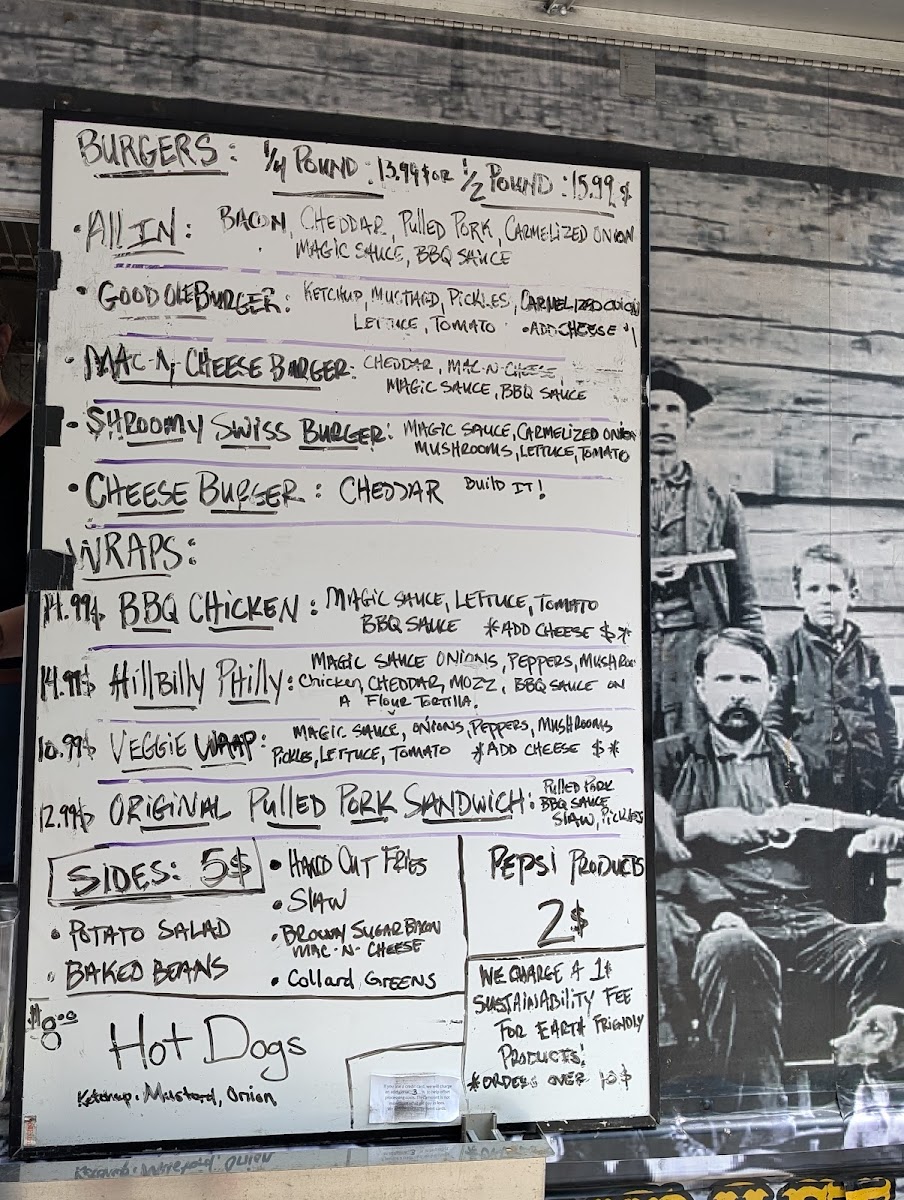 BURGERS: 1/4 POUND: 13.99$ or 1/2 POUND: 15.99$
• All IN: BACON, CHEDDAR, Pulled PORK, CARMELIZED ONION
MAGIC SAUCE, BBQ SAUCE
• GOOD OLE BURGER: KETCHUP, MUSTARD, PICKLES, CARMELIZED ONION
LETTUCE, TOMATO • ADD CHEESE $1
• MAC-N-CHEESE BURGER: CHEDDAR, MAC-N-CHEESE,
MAGIC SAUCE, BBQ SAUCE
• SHROOMY SWISS BURGER: MAGIC SAUCE, CARMELIZED ONION
MUSHROOMS, LETTUCE, TOMATO
• CHEESE BURGER: CHEDDAR BUILD IT!
WRAPS:
14.99$ BBQ CHICKEN: MAGIC SAUCE, LETTUCE, TOMATO
BBQ SAUCE *ADD CHEESE $*
14.99$ HillBilly PHilly: MAGIC SAUCE ONIONS, PEPPERS, MUSHROO
CHicken, CHEDDAR, MOZZ, BBQ SAUCE ON
A FlOUR TORTILLA.
10.99$ VEGGIE WRAP: MAGIC SAUCE, ONIONS, PEPPERS, MUSHROOMS
PICKLES, LETTUCE, TOMATO *ADD CHEESE $*
12.99$ ORIGINAL Pulled PORK SANDWICH: Pulled PORK
BBQ SAUCE
SlAW, PICKLES
SIDES: 5$
• POTATO SALAD
• BAKED BEANS
• HAND CUT FRIES
• SlAW
• BROWN SUGAR BACON
MAC-N-CHEESE
• Collard GREENS
PEPSI PRODUCTS
2$
WE CHARGE A 1$
SUSTAINABILITY FEE
FOR EARTH FRIENDLY
PRODUCTS!
*ORDERS OVER 10$
$8.00
Hot Dogs
Ketchup, Mustard, Onion